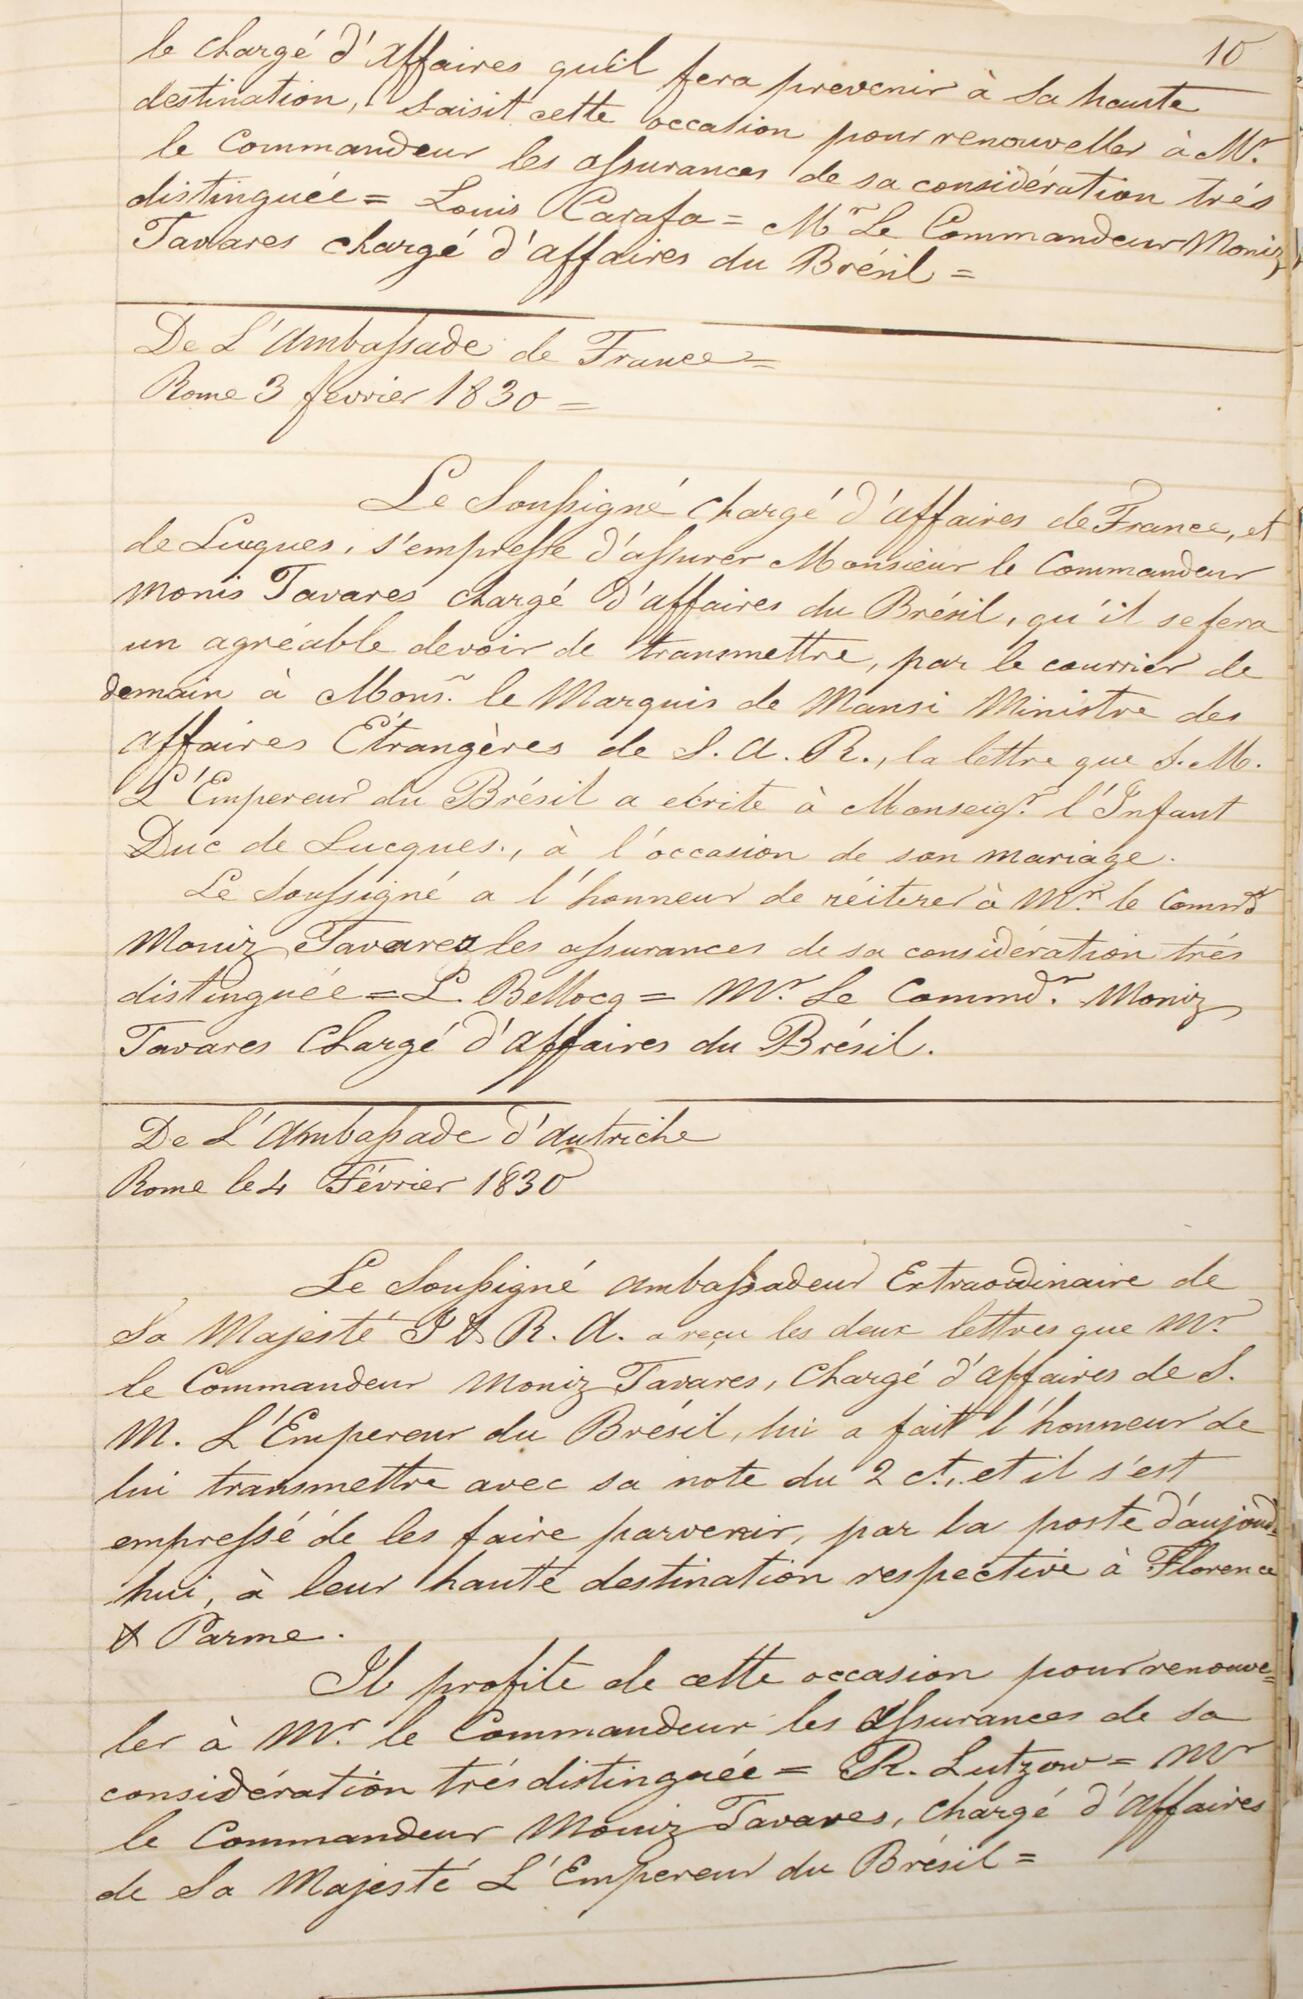 10
le chargé d'Affaires qu'il fera prevenir à sa haute
destination, saisit cette occasion pour renouveller à Mr.
le Commandeur les assurances de sa considération trés
distinguée = Louis Carafa = Mr Le Commandeur Moniz
Tavares chargé d'affaires du Brésil =
De L'Ambassade de France =
Rome 3 fevrier 1830 =
Le Soussigné chargé d'affaires de France, et
de Lucques, s'empresse d'assurer Monsieur le Commandeur
Monis Tavares chargé d'affaires du Brésil, qu'il se fera
un agréable devoir de transmettre, par le courrier de
demain à Monsr. le Marquis de Mansi Ministre des
affaires Etrangères de S. A. R., la lettre que S. M.
L'Empereur du Brésil a ecrite à Monseigr. l'Infant
Duc de Lucques., à l'occasion de son mariage.
Le Soussigné a l'honneur de réiterer à Mr. le Commdr
Moniz Tavares les assurances de sa considération trés
distinguée = L. Bellocq = Mr. Le Commdr. Moniz
Tavares Chargé d'affaires du Brésil.
De L'Ambassade d'autriche
Rome le 4 Février 1830
Le Soussigné Ambassadeur Extraordinaire de
Sa Majesté I & R. A. a reçu les deux lettres que Mr.
le Commandeur Moniz Tavares, Chargé d'affaires de S.
M. L'Empereur du Brésil, lui a fait l'honneur de
lui transmettre avec sa note du 2 ct., et il s'est
empressé de les faire parvenir, par la poste d'aujourd
hui, à leur haute destination respective à Florence
& Parme.
Il profite de cette occasion pour renouve=
ler à Mr. le Commandeur les Assurances de sa
considération trés distinguée = R. Lutzow = Mr
le Commandeur Moniz Tavares, chargé d'affaires
de Sa Majesté L'Empereur du Brésil =